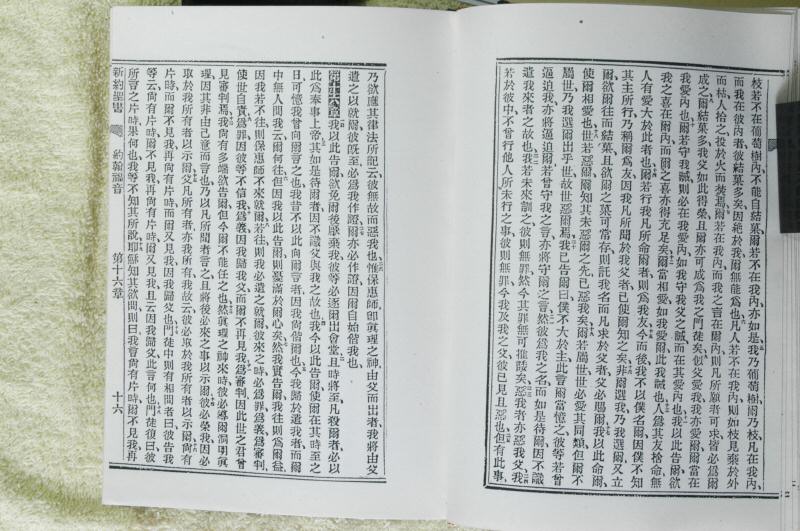 枝若不在葡萄樹內不能自結菓爾若不在我內亦如是我乃葡萄樹爾乃枝凡在我內、
而我在彼內者彼結菓多矣因絕於我爾無能爲也凡人若不在我內則如枝見棄於外
而枯人拾之投於火而焚焉爾若在我內而我之言在爾內則凡所願者可求皆必爲爾
成之爾結菓多我父如此得榮且爾亦可成爲我之門徒矣似父愛我我亦愛爾爾當在
我愛內也爾若守我誡則必在我愛內如我守我父之誡而在其愛內也我以此告爾欲
我之喜在爾內而爾之喜亦得充足矣爾當相愛如我愛爾此我誡也人爲其友捨命無
人有愛大於此者也爾若行我凡所命爾者則爲我友今而後我不以僕名爾因僕不知
其主所行乃稱爾爲友因我凡所聞於我父者已使爾知之矣非爾選我乃我選爾又立
爾欲爾往而結菓且欲爾之菓可常存則託我名而凡求於父者父必賜爾我以此命爾
使爾相愛也世若惡爾爾知其未惡爾之先已惡我矣爾若屬世世必愛其同類但爾不
屬世乃我選爾出乎世故世惡爾焉我已告爾曰僕不大於主此言爾當憶之彼等若曾
逼迫我亦將逼迫爾若曾守我之言亦將守爾之言然彼爲我之名而如是待爾因不識
遣我來者之故也我若未來訓之彼則無罪然今其罪無可推諉矣惡我者亦惡我父我
若於彼中不曾行他人所未行之事彼則無罪今我及我之父彼已見且惡也但有此事、
乃欲應其律法所記云彼無故而惡我也惟保惠師卽眞理之神由父而出者我將由父
遣之以就爾彼旣至必爲我作證爾亦必作證因爾自始偕我也、
第十六章我以此告爾欲免爾後厭棄我彼等必逐爾出會堂且時將至凡殺爾者必以
此爲奉事上帝其如是待爾者因不識父與我之故也我今以此告爾使爾在其時至之
日可憶我曾向爾言之也我昔不以此向爾言者因我尙偕爾也今我歸於遣我者而爾
中無人問我云爾何往但因我以此告爾則憂滿於爾心矣然我實告爾我往則爲爾益
因我若不往則保惠師不來就爾若往則我必遣之就爾彼來之時必爲罪爲義爲審判
使世自責爲罪因彼等不信我爲義因我歸我父而爾不再見我爲審判因此世之君曾
見審判焉我尙有多端欲告爾但今爾不能任之也然眞理之神來時彼必導爾洞明眞
理因其非由己意而言也乃以凡所聞者言之且將後必來之事以示爾彼必榮我因必
取於我所有者以示爾父凡所有者亦我所有故我云彼必取於我所有者以示爾尙有
片時而爾不見我再尙有片時而爾又見我因我歸父也門徒中則有相問者曰彼告我
等云尙有片時爾不見我再尙有片時爾又見我且云因我歸父此言何也門徒復曰彼
所言之片時果何也我等不知其所說耶穌知其欲問則曰我曾言尙有片時爾不見我再
新約聖書 約翰福音 第十六章 十六